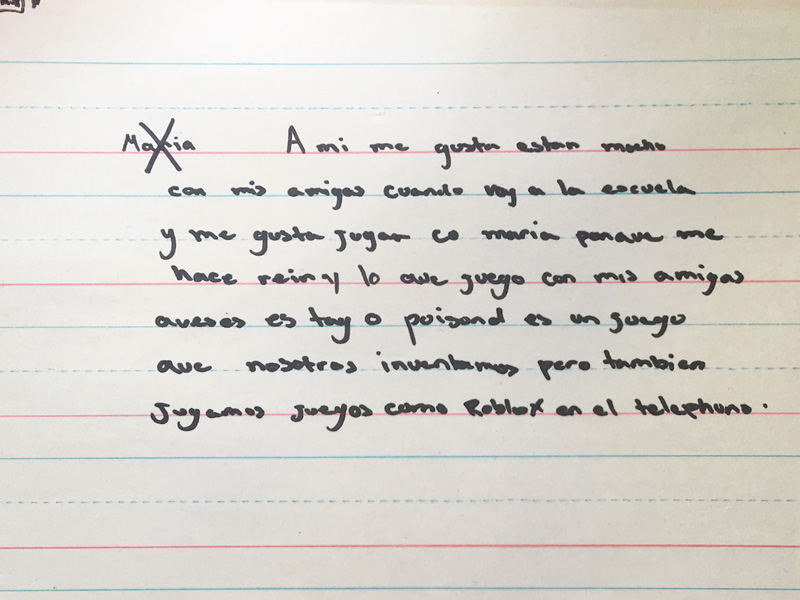 Maria A mi me gusta estar mucho
con mis amigas cuando voy a la escuela
y me gusta jugar co maria porque me
hace reir y lo que juego con mis amigas
aveses es tag o poisond es un juego
que nosotros inventamos pero tambien
jugamos juegos como Roblox en el telephono.